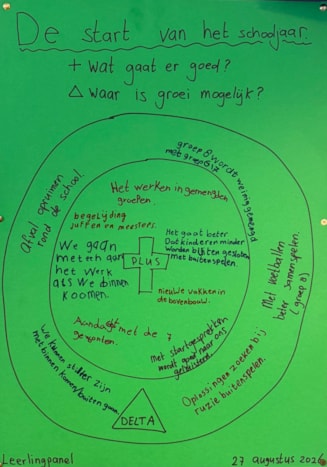 De start van het schooljaar.
+ Wat gaat er goed?
△ Waar is groei mogelijk?
groep 8 wordt weinig gemengd
met groep 6/7
Afval opruimen
rond de school.
Het werken in gemengden
groepen.
begeleiding
juffen en meesters.
Het gaat beter
Dat kinderen minder
worden buiten gesloten
met buitenspelen.
We gaan
meteen aan
het werk
als we binnen
koomen.
PLUS
nieuwe vakken in
de bovenbouw.
Met voetballen
beter samenspelen.
(groep 8)
Aandacht met de 7
gewoonten.
Met startgesprekken
wordt goed naar ons
geluisterd
We kunnen stiller zijn
met binnen komen/buiten gaan.
Oplossingen zoeken bij
ruzie buitenspelen.
DELTA
Leerlingpanel
27 augustus 2026